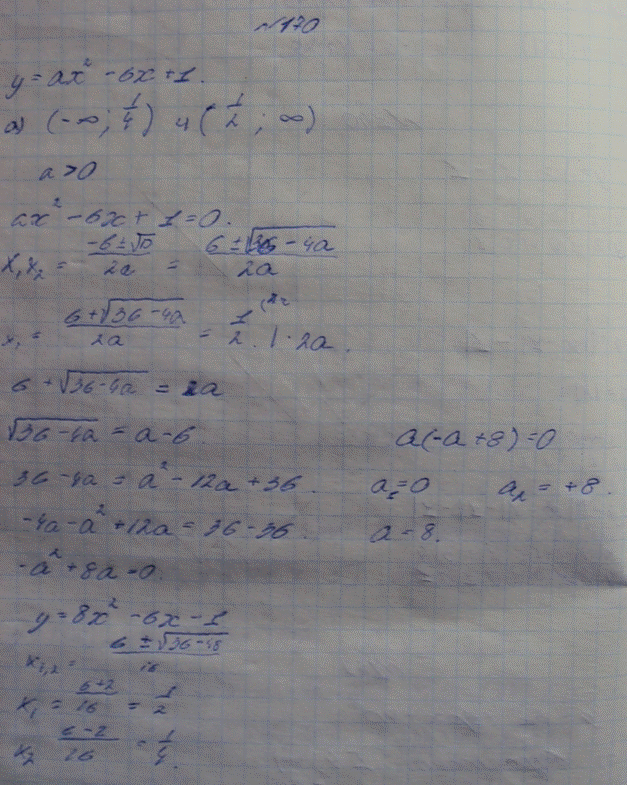 №170
y = ax² - 6x + 1.
а) (-∞; 1/4) и (1/2; ∞)
a > 0
ax² - 6x + 1 = 0.
x₁x₂ = (-6 ± √D)/2a = (6 ± √(36 - 4a))/2a
x₁ = (6 + √(36 - 4a))/2a = 1/2. | · 2a.
6 + √(36 - 4a) = a
√(36 - 4a) = a - 6. a(-a + 8) = 0
36 - 4a = a² - 12a + 36. a₁ = 0 a₂ = +8.
-4a - a² + 12a = 36 - 36. a = 8.
-a² + 8a = 0.
y = 8x² - 6x - 1
x₁,₂ = (6 ± √(36 - )/16
x₁ = (6 + 2)/16 = 1/2
x₂ (6 - 2)/16 = 1/4.